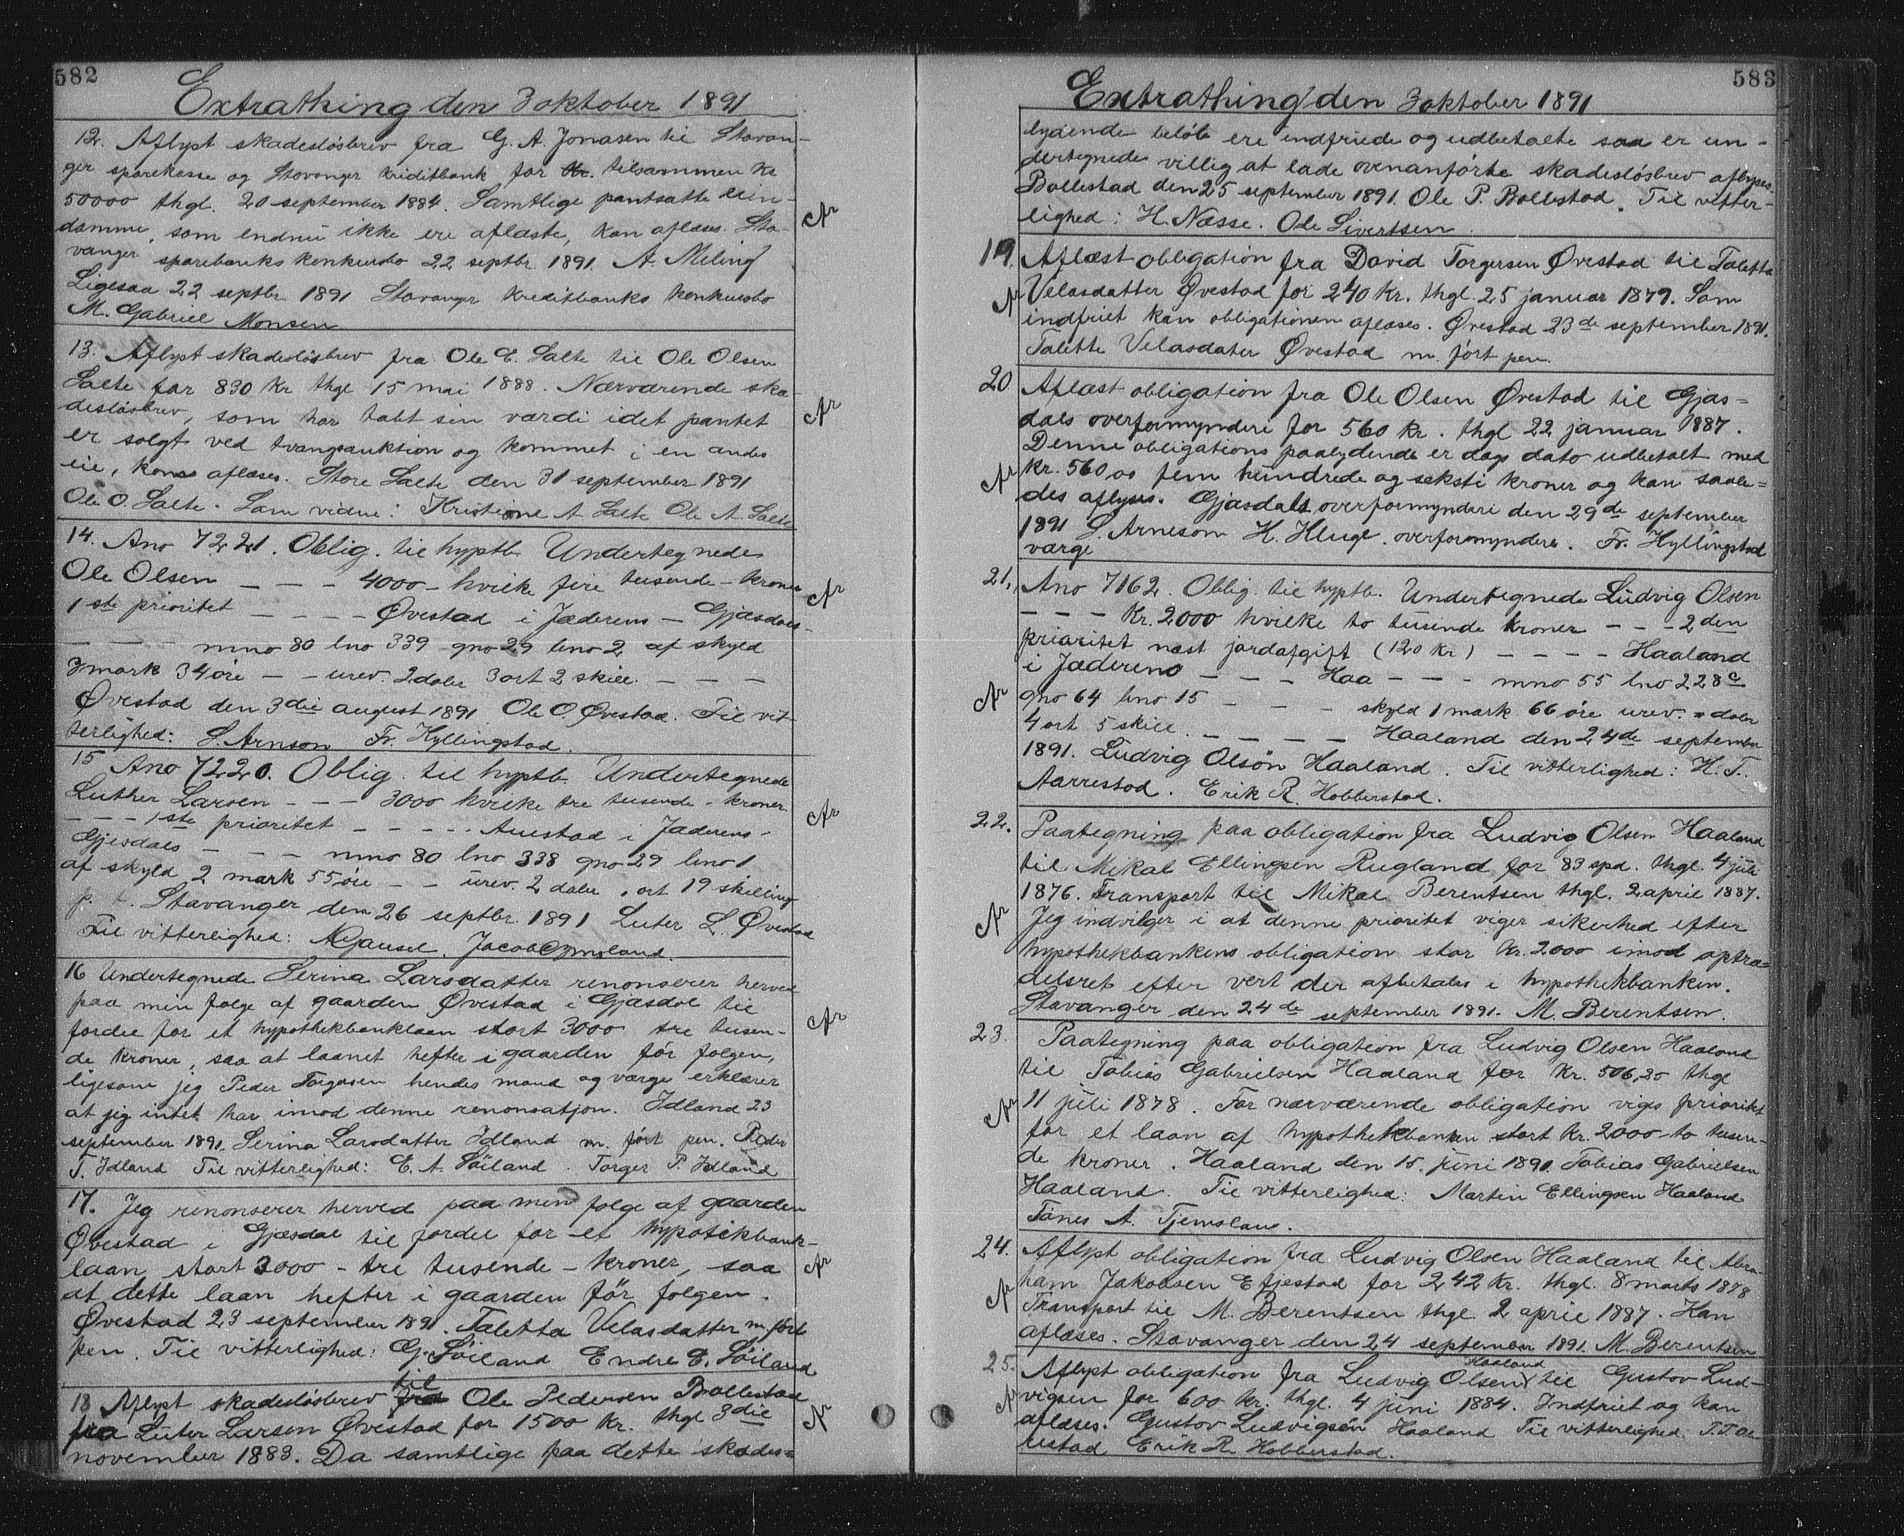 582
Extrathing den 3 oktober 1891
12. Aflyst skadesløsbrev fra G. A. Jonasen til Stavan-
ger sparekasse og Stavanger Kreditbank for Kr. tilsammen Kr
50000 thgl. 20 september 1884. Samtlige pantsatte eien-
domme, som endnu ikke ere aflæste, kan aflæses. Sta-
vanger sparebanks konkursbo 22 septbr. 1891. A. Meling
Ligesaa 22 septbr 1891 Stavanger Kreditbanks konkursbo
M. Gabriel Monsen
13. Aflyst skadesløsbrev fra Ole E. Salte til Ole Olsen
Salte for 830 Kr thgl 15 mai 1888. Nærværende ska-
desløsbrev, som har tabt sin værdi idet pantet
er solgt ved tvangsauktion og kommet i en andes
eie, kan aflæses. Store Salte den 31 september 1891
Ole O. Salte. Som vidne: Kristine A Salte Ole A. Salte
14. Ano 7221. Oblig. til hyptb. Undertegnede
Ole Olsen — — — 4000 - hvilke fire tusende - kroner
1ste prioritet — — — — Øvestad i Jæderens — Gjæsdals-
— — — mno 80 lno 339 gno 29 bno 2 af skyld
3 mark 34 øre — — urev. 2 daler 3 ort 2 skill. — — —
Øvestad den 3die august 1891 Ole O. Øvestad. Til vit-
terlighed: S. Arnson Fr. Hyllingstad.
15 Ano 7220. Oblig. til hyptb. Undertegnede
Luther Larsen — — — 3000 hvilke tre tusende - kroner
— — — 1ste prioritet — — — — Auestad i Jæderens -
Gjesdals — — — mno 80 lno 338 gno 29 bno 1
af skyld 2 mark 55 øre — — urev. 2 daler . ort 19 skilling
Stavanger den 26 septbr. 1891 Luter L. Øvestad
Til vitterlighed: Gausel. Jacob
16 Undertegnede Serina Larsdatter renonserer herved
paa min folge af gaarden Øvestad i Gjæsdal til
fordel for et hypothekbanklaan stort 3000 tre tusen-
de kroner, saa at laanet hefter i gaarden før folgen,
ligesom jeg Peder Torgersen hendes mand og værge erklærer
at jeg intet har imod denne renonsatjon. Idland 23
september 1891. Serina Larsdatter Idland m. ført pen. Peder
T. Idland Til vitterlighed: E. A. Søiland. Torger P. Idland
17. Jeg renonserer herved paa min folge af gaarden
Øvestad i Gjæsdal til fordel for et hypotikbank-
laan stort 3000 - tre tusende - kroner, saa
at dette laan hefter i gaarden før folgen.
Øvestad 23 september 1891. Taletta Velasdatter m. ført
pen. Til vitterlighed: G. Søiland Endre E. Søiland
18 Aflyst skadesløsbrev til Ole Pedersen Bollestad
fra Luter Larsen Øvestad for 1500 Kr. thgl 3die
november 1883. Da samtlige paa dette skades-
583
Extrathing den 3 oktober 1891
lydende beløb ere indfriede og udbetalte saa er un-
dertegnede villig at lade ovenanførte skadesløsbrev aflyses.
Bollestad den 25 september 1891. Ole P. Bollestad. Til vitter-
lighed: H. Næsse. Ole Sivertsen.
19. Aflæst obligation fra David Torgersen Øvestad til Taletta
Velasdatter Øvestad for 240 Kr. thgl. 25 januar 1879. Som
indfriet kan obligationen aflæses. Øvestad 23de september 1891.
Talette Velasdater Øvestad m. ført pen.
20 Aflæst obligation fra Ole Olsen Øvestad til Gjæs-
dals overformynderi for 560 kr. thgl 22 januar 1887.
Denne obligations paalydende er dags dato udbetalt med
Kr. 560,00 fem hundrede og seksti kroner og kan saale-
des aflyses. Gjæsdals overformynderi den 29de september
1891 S. Arneson H. Hluge. overformyndere. Fr. Hyllingstad
værge
21. Ano 7162. Oblig. til hyptb. Undertegnede Ludvig Olsen
— — — Kr. 2000 hvilke to tusende kroner — — - 2den
prioritet næst jordafgift (120 kr) — — — — Haaland
i Jæderens — — — Haa — — — mno 55 lno 228c
gno 64 bno 15 — — — skyld 1 mark 66 øre urev. " daler
4 ort 5 skill. — — — — — Haaland den 24de september
1891. Ludvig Olsøn Haaland. Til vitterlighed: H. T.
Aarrestad. Erik R. Hobberstad.
22. Paategning paa obligation fra Ludvig Olsen Haaland
til Mikal Ellingsen Rugland for 83 spd. thgl. 4 juli
1876. Transport til Mikal Berentsen thgl. 2 april 1887.
Jeg indvilger i at denne prioritet viger sikerhed efter
hypothekbankens obligation stor Kr. 2000 imod optræ-
delsret efter vert der afbetales i hypothekbanken.
Stavanger den 24de september 1891. M. Berentsen.
23. Paategning paa obligation fra Ludvig Olsen Haaland
til Tobias Gabrielsen Haaland for Kr. 506,20 thgl
11 juli 1878. For nærværende obligation viges prioritet
for et laan af hypothekbanken stort Kr. 2000 to tusen-
de kroner. Haaland den 15. juni 1891. Tobias Gabrielsen
Haaland. Til vitterlighed: Martin Ellingsen Haaland
Tønes A. Tjemsland.
24. Aflyst obligation fra Ludvig Olsen Haaland til Abra-
ham Jakobsen Efjestad for 242 Kr. thgl. 8 marts 1878
Transport til M. Berentsen thgl 2 april 1887. Kan
aflæses. Stavanger den 24 september 1891. M. Berentsen
25. Aflyst obligation fra Ludvig Olsen Haaland til Gustav Lud-
vigsen for 600 Kr. thgl. 4 juni 1884. Indfriet og kan
aflæses. Gustav Ludvigsen Haaland Til vitterlighed: T. T.
Erik R Hobberstad.